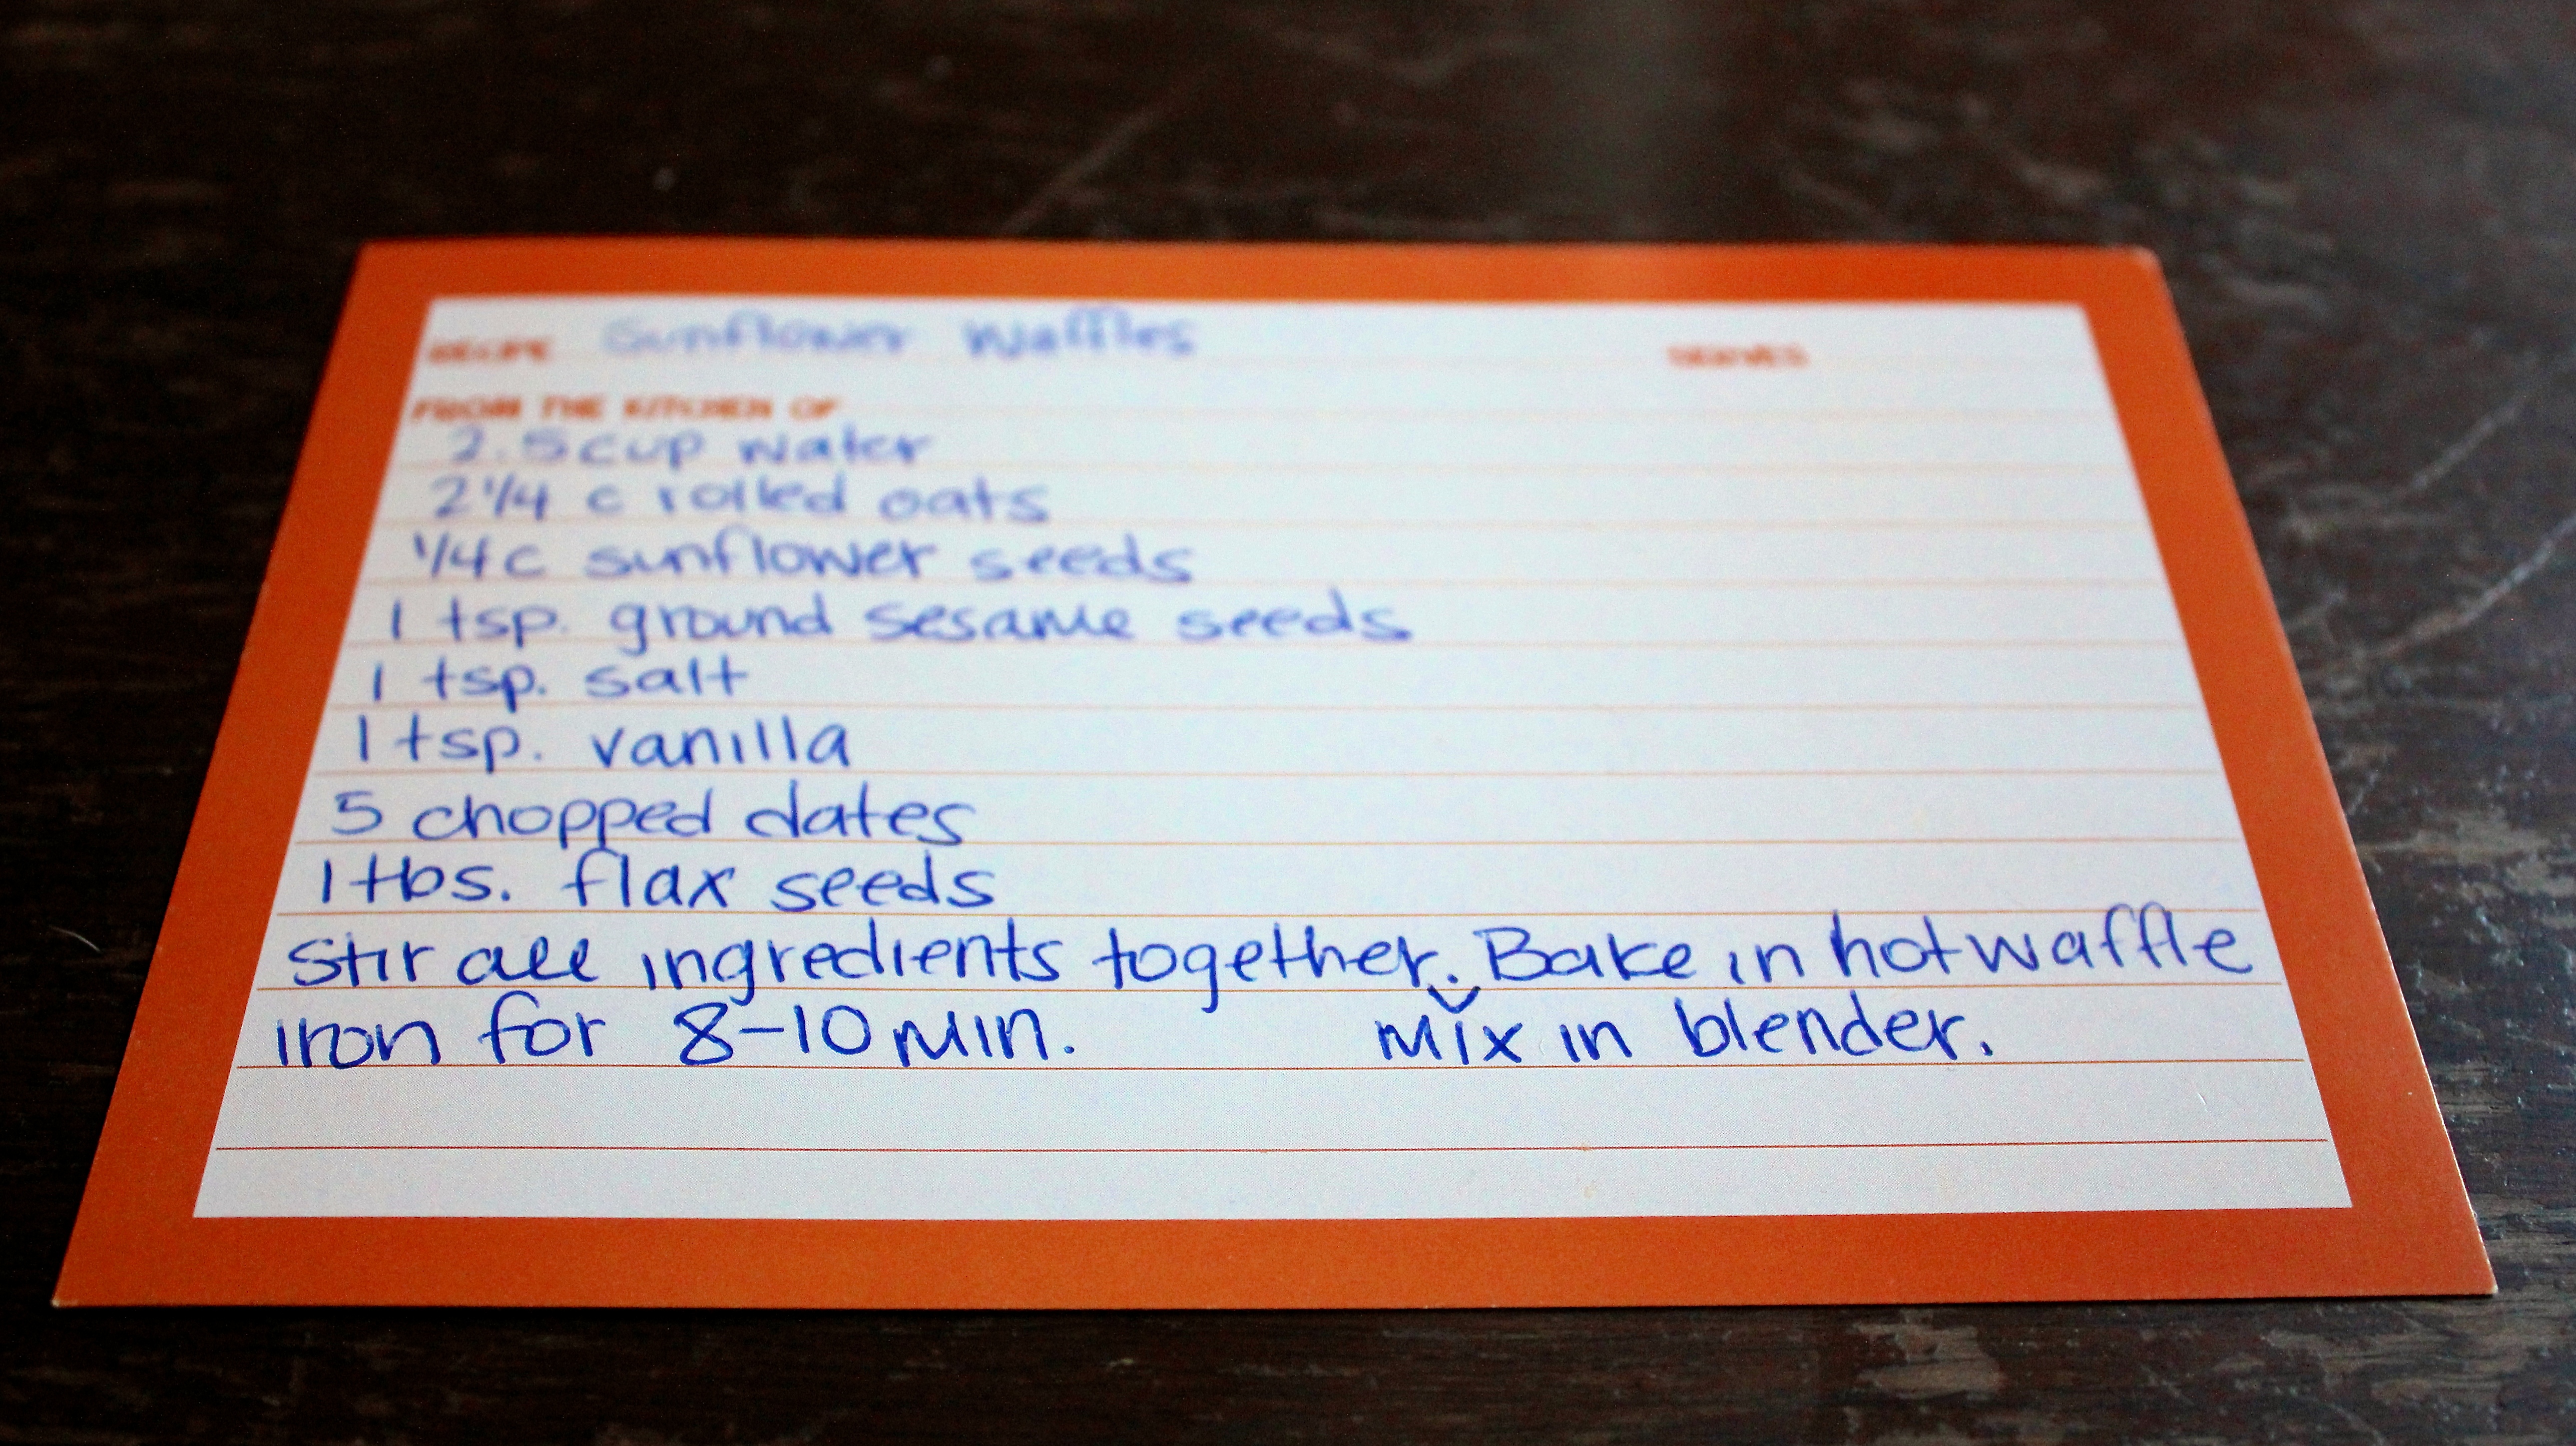 RECIPE Sunflower Waffles SERVES
FROM THE KITCHEN OF
2.5 cup water
2 1/4 c rolled oats
1/4 c sunflower seeds
1 tsp. ground sesame seeds
1 tsp. salt
1 tsp. vanilla
5 chopped dates
1 tbs. flax seeds
Stir all ingredients together. Bake in hot waffle
iron for 8-10 min. mix in blender.